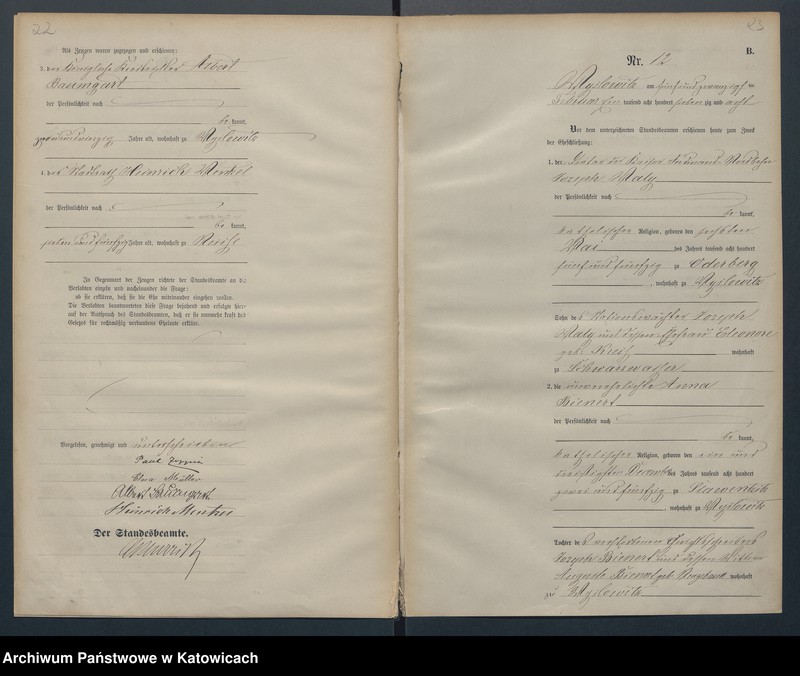 22
Als Zeugen waren zugezogen und erschienen:
3. der Königliche Albert
Baumgart
der Persönlichkeit nach
be kannt,
Jahre alt, wohnhaft zu Myslowitz
4. Heinrich
der Persönlichkeit nach
be kannt,
sieben und fünfzig Jahre alt, wohnhaft zu
In Gegenwart der Zeugen richtete der Standesbeamte an die
Verlobten einzeln und nacheinander die Frage:
ob sie erklären, daß sie die Ehe miteinander eingehen wollen.
Die Verlobten beantworteten diese Frage bejahend und erfolgte hier-
auf der Ausspruch des Standesbeamten, daß er sie nunmehr kraft des
Gesetzes für rechtmäßig verbundene Eheleute erkläre.
Vorgelesen, genehmigt und unterschrieben
Paul
Müller
Albert Baumgart
Heinrich
Der Standesbeamte.
23
B.
Nr. 12
Myslowitz am fünf und zwanzigsten
Februar ein tausend acht hundert sieben zig und acht
Vor dem unterzeichneten Standesbeamten erschienen heute zum Zweck
der Eheschließung:
1. der der Kaiser Ferdinands Nordbahn
Joseph Maly
der Persönlichkeit nach
be kannt,
katholischer Religion, geboren den sechsten
Mai des Jahres tausend acht hundert
fünf und fünfzig zu Oderberg
, wohnhaft zu Myslowitz
Sohn des Joseph
Maly und dessen Ehefrau Eleonore
geb. wohnhaft
zu Schwarzwasser
2. die unverehelichte Anna
Bienert
der Persönlichkeit nach
be kannt,
katholischer Religion, geboren den ein und
dreißigsten December des Jahres tausend acht hundert
zwei und fünfzig zu Slawentzitz
, wohnhaft zu Myslowitz
Tochter des verstorbenen
Joseph Bienert und dessen Wittwe
Auguste Bienert geb. wohnhaft
zu Myslowitz
Archiwum Państwowe w Katowicach